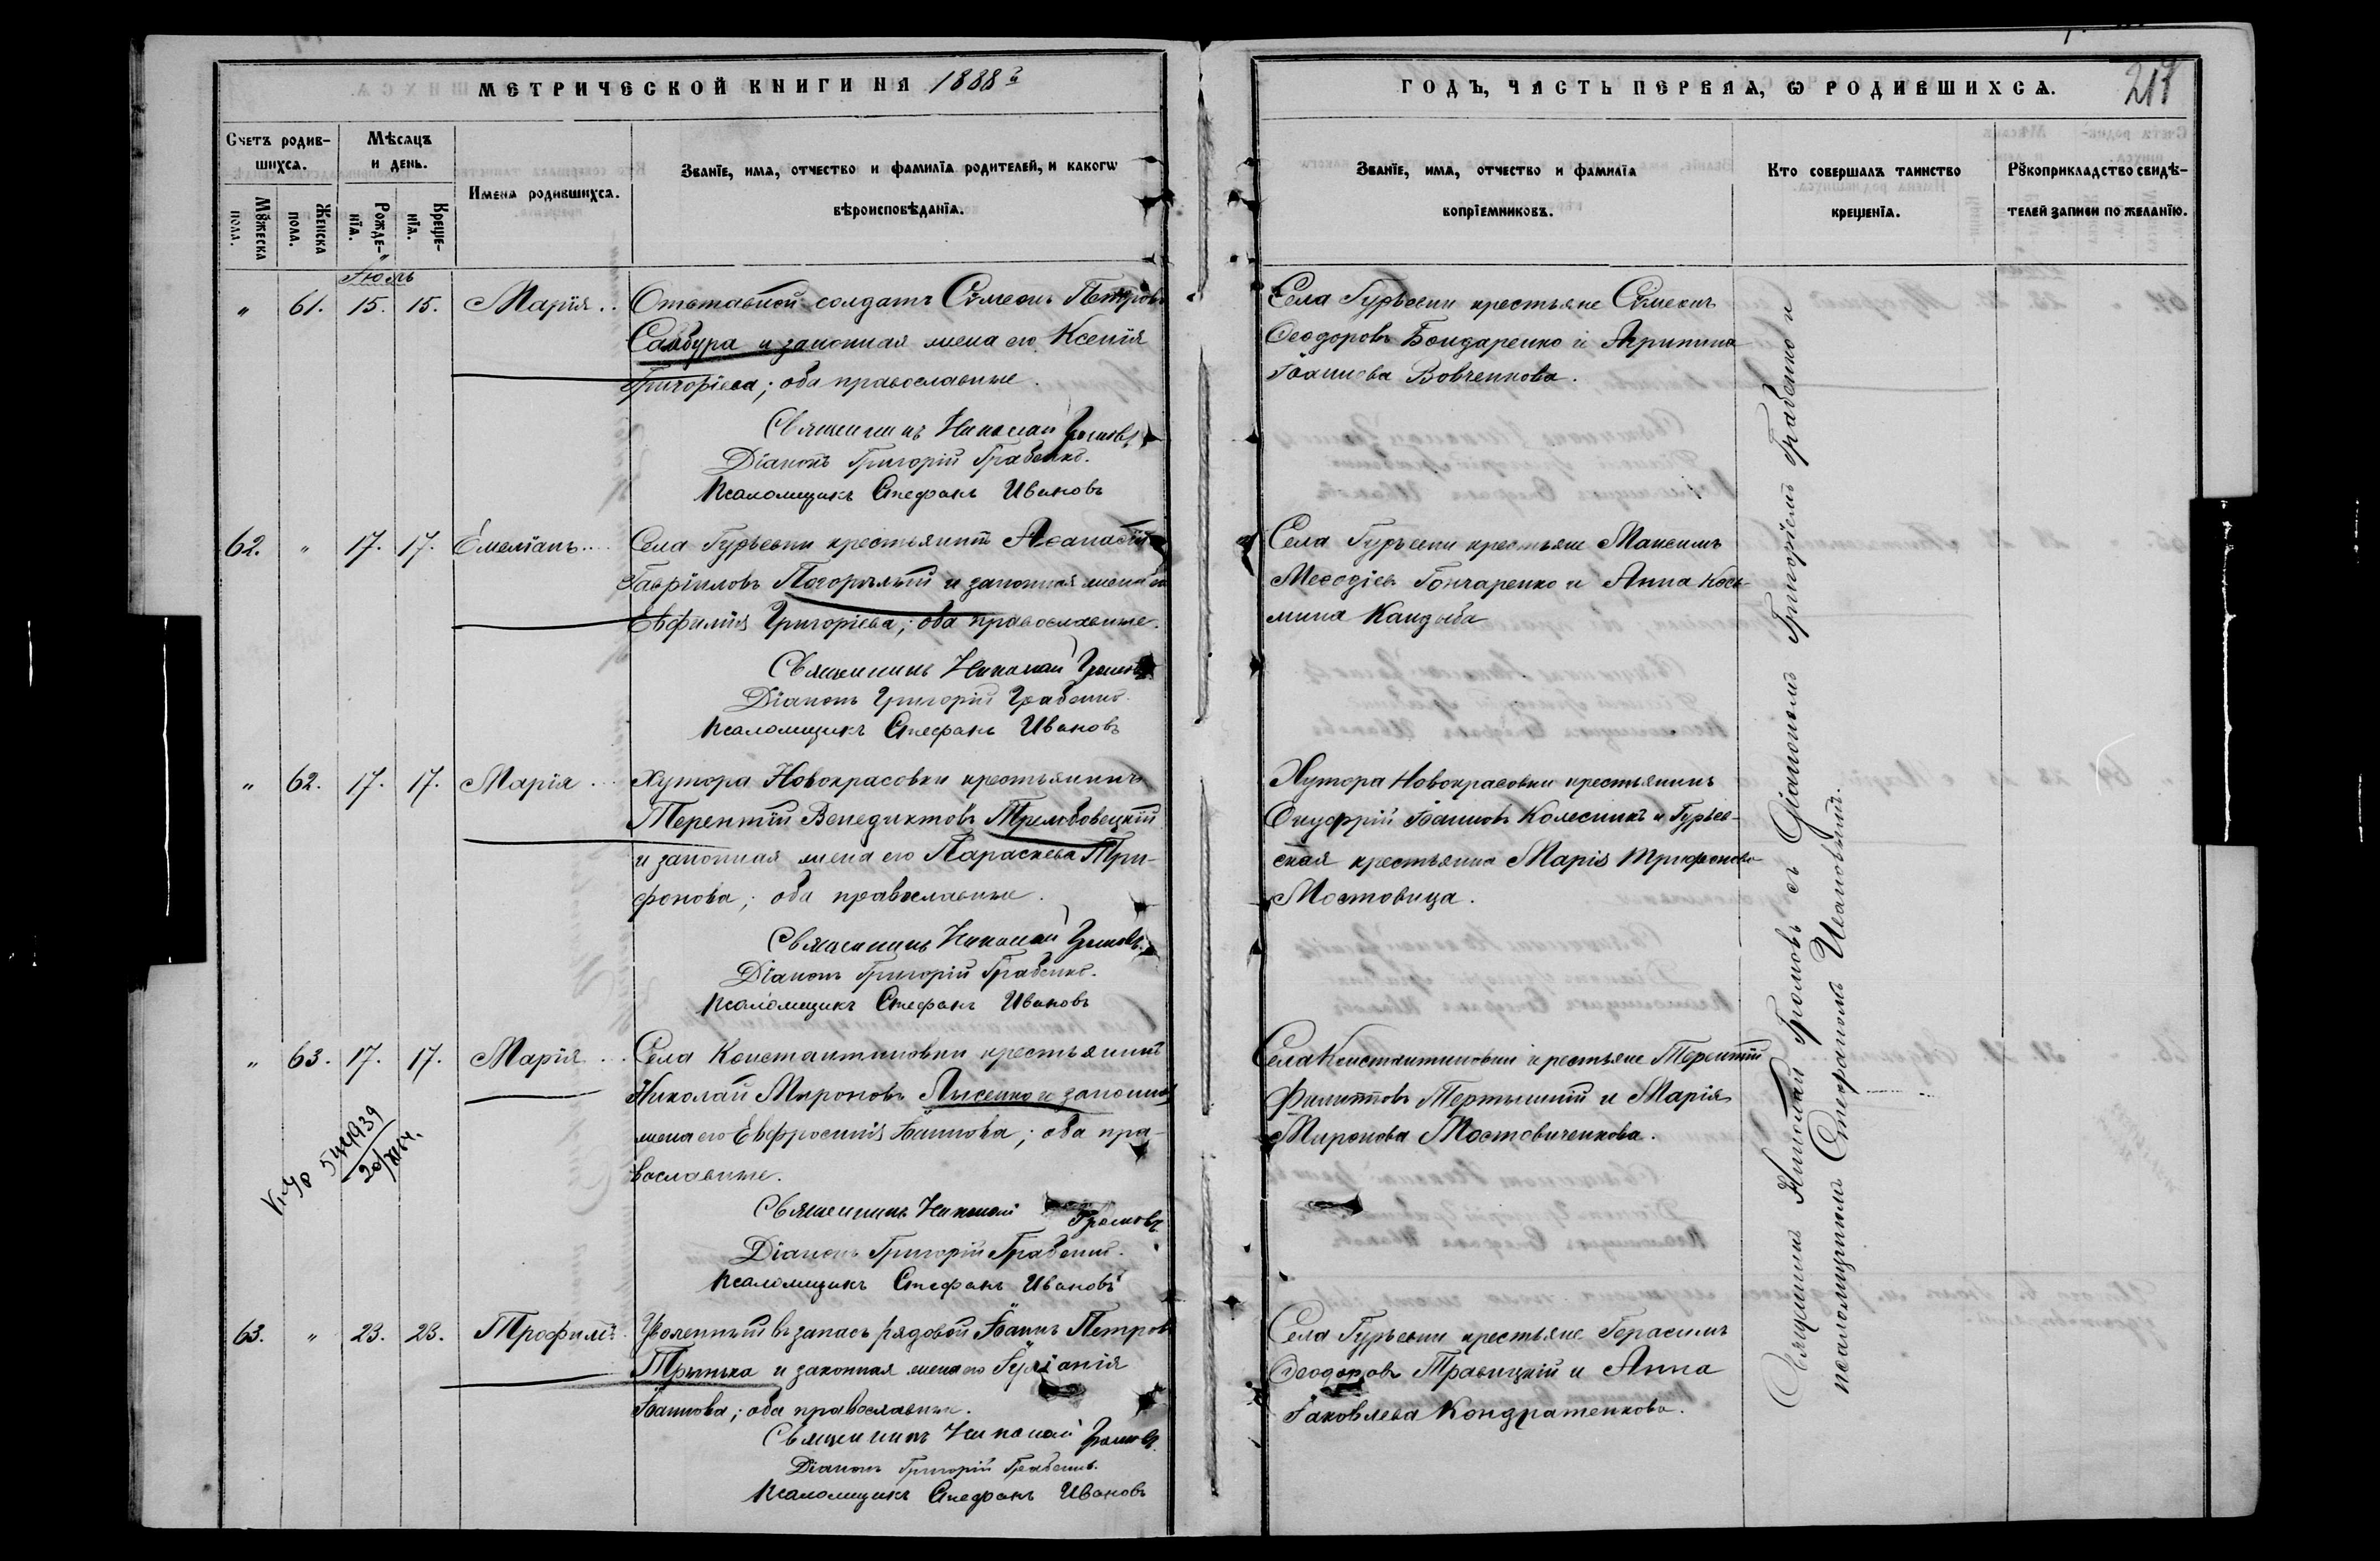 МЕТРИЧЕСКОЙ КНИГИ НА 1888й
ГОДЪ, ЧАСТЬ ПЕРВАЯ, Ѡ РОДИВШИХСѦ.
217
Счетъ родив-
шихсѧ.
Мѣсѧцъ
и день.
Имена родившихсѧ.
Званїе, имѧ, отчество и фамилїѧ родителей, и какогѡ
вѣроисповѣданїѧ.
Мꙋжеска
пола.
Женска
пола.
Рожде-
нїѧ.
Креще-
нїѧ.
Званїе, имѧ, отчество и фамилїѧ
воспрїемниковъ.
Кто совершалъ таинство
крещенїѧ.
Рꙋкоприкладство свидѣ-
телей записи по желанїю.
Іюль
" 61. 15. 15. Марія .. Отставной солдатъ Сѵмеонъ Петровъ
Самбура и законная жена его Ксенія
Григоріева; оба православные.
Священникъ Николай Громовъ
Діаконъ Григорій Грабенко.
Псаломщикъ Стефанъ Ивановъ
Села Гурьевки крестьяне Сѵмеонъ
Ѳеодоровъ Бондаренко и Агрипина
Іоаннова Вовченкова.
62. " 17. 17. Емеліанъ.... Села Гурьевки крестьянинъ Аѳанасій
Гавріиловъ Погорѣлый и законная жена его
Евфимія Григоріева; оба православные.
Священникъ Николай Громовъ
Діаконъ Григорій Грабенко.
Псаломщикъ Стефанъ Ивановъ
Села Гурьевки крестьяне Максимъ
Меѳодіевъ Гончаренко и Анна Кось-
мина Кандыба
" 62. 17. 17. Марія ... Хутора Новокрасовки крестьянинъ
Терентій Венедиктовъ Трембовецкій
и законная жена его Параскева Три-
фонова; оба православные.
Священникъ Николай Громовъ.
Діаконъ Григорій Грабенко.
Псаломщикъ Стефанъ Ивановъ
Хутора Новокрасовки крестьянинъ
Онуфрій Іоанновъ Колесникъ и Гурьев-
ская крестьянка Марія Трифонова
Мостовица.
" 63. 17. 17. Марія ... Села Константиновки крестьянинъ
Николай Мироновъ Лысенко и законная
жена его Евфросинія Іоаннова; оба пра-
вославные.
Священникъ Николай Громовъ
Діаконъ Григорій Грабенко.
Псаломщикъ Стефанъ Ивановъ
Села Константиновки крестьяне Терентій
Филипповъ Тертышный и Марія
Миронова Мостовиченкова.
63. " 23. 23. Трофимъ. Уволенный въ запасъ рядовой Іоаннъ Петровъ
Трынька и законная жена его Іуліанія
Іоаннова; оба православные.
Священникъ Николай Громовъ.
Діаконъ Григорій Грабенко.
Псаломщикъ Стефанъ Ивановъ
Села Гурьевки крестьяне Герасимъ
Ѳеодоровъ Травицкій и Анна
Іаковлева Кондратенкова.
Священникъ Николай Громовъ съ Діакономъ Григоріемъ Грабенко и
псаломщикомъ Стефаномъ Ивановымъ.